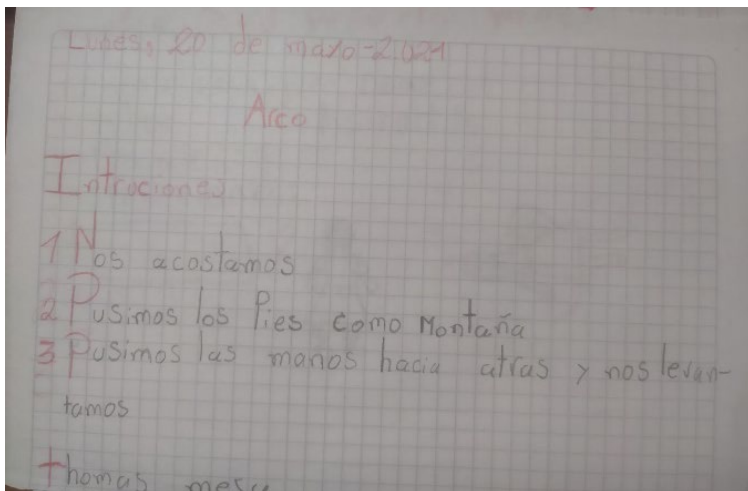 Lunes, 20 de mayo-2024
Arco
Introciones
1 Nos acostamos
2 Pusimos los Pies como Montaña
3 Pusimos las manos hacia atras y nos levan-
tamos
thomas